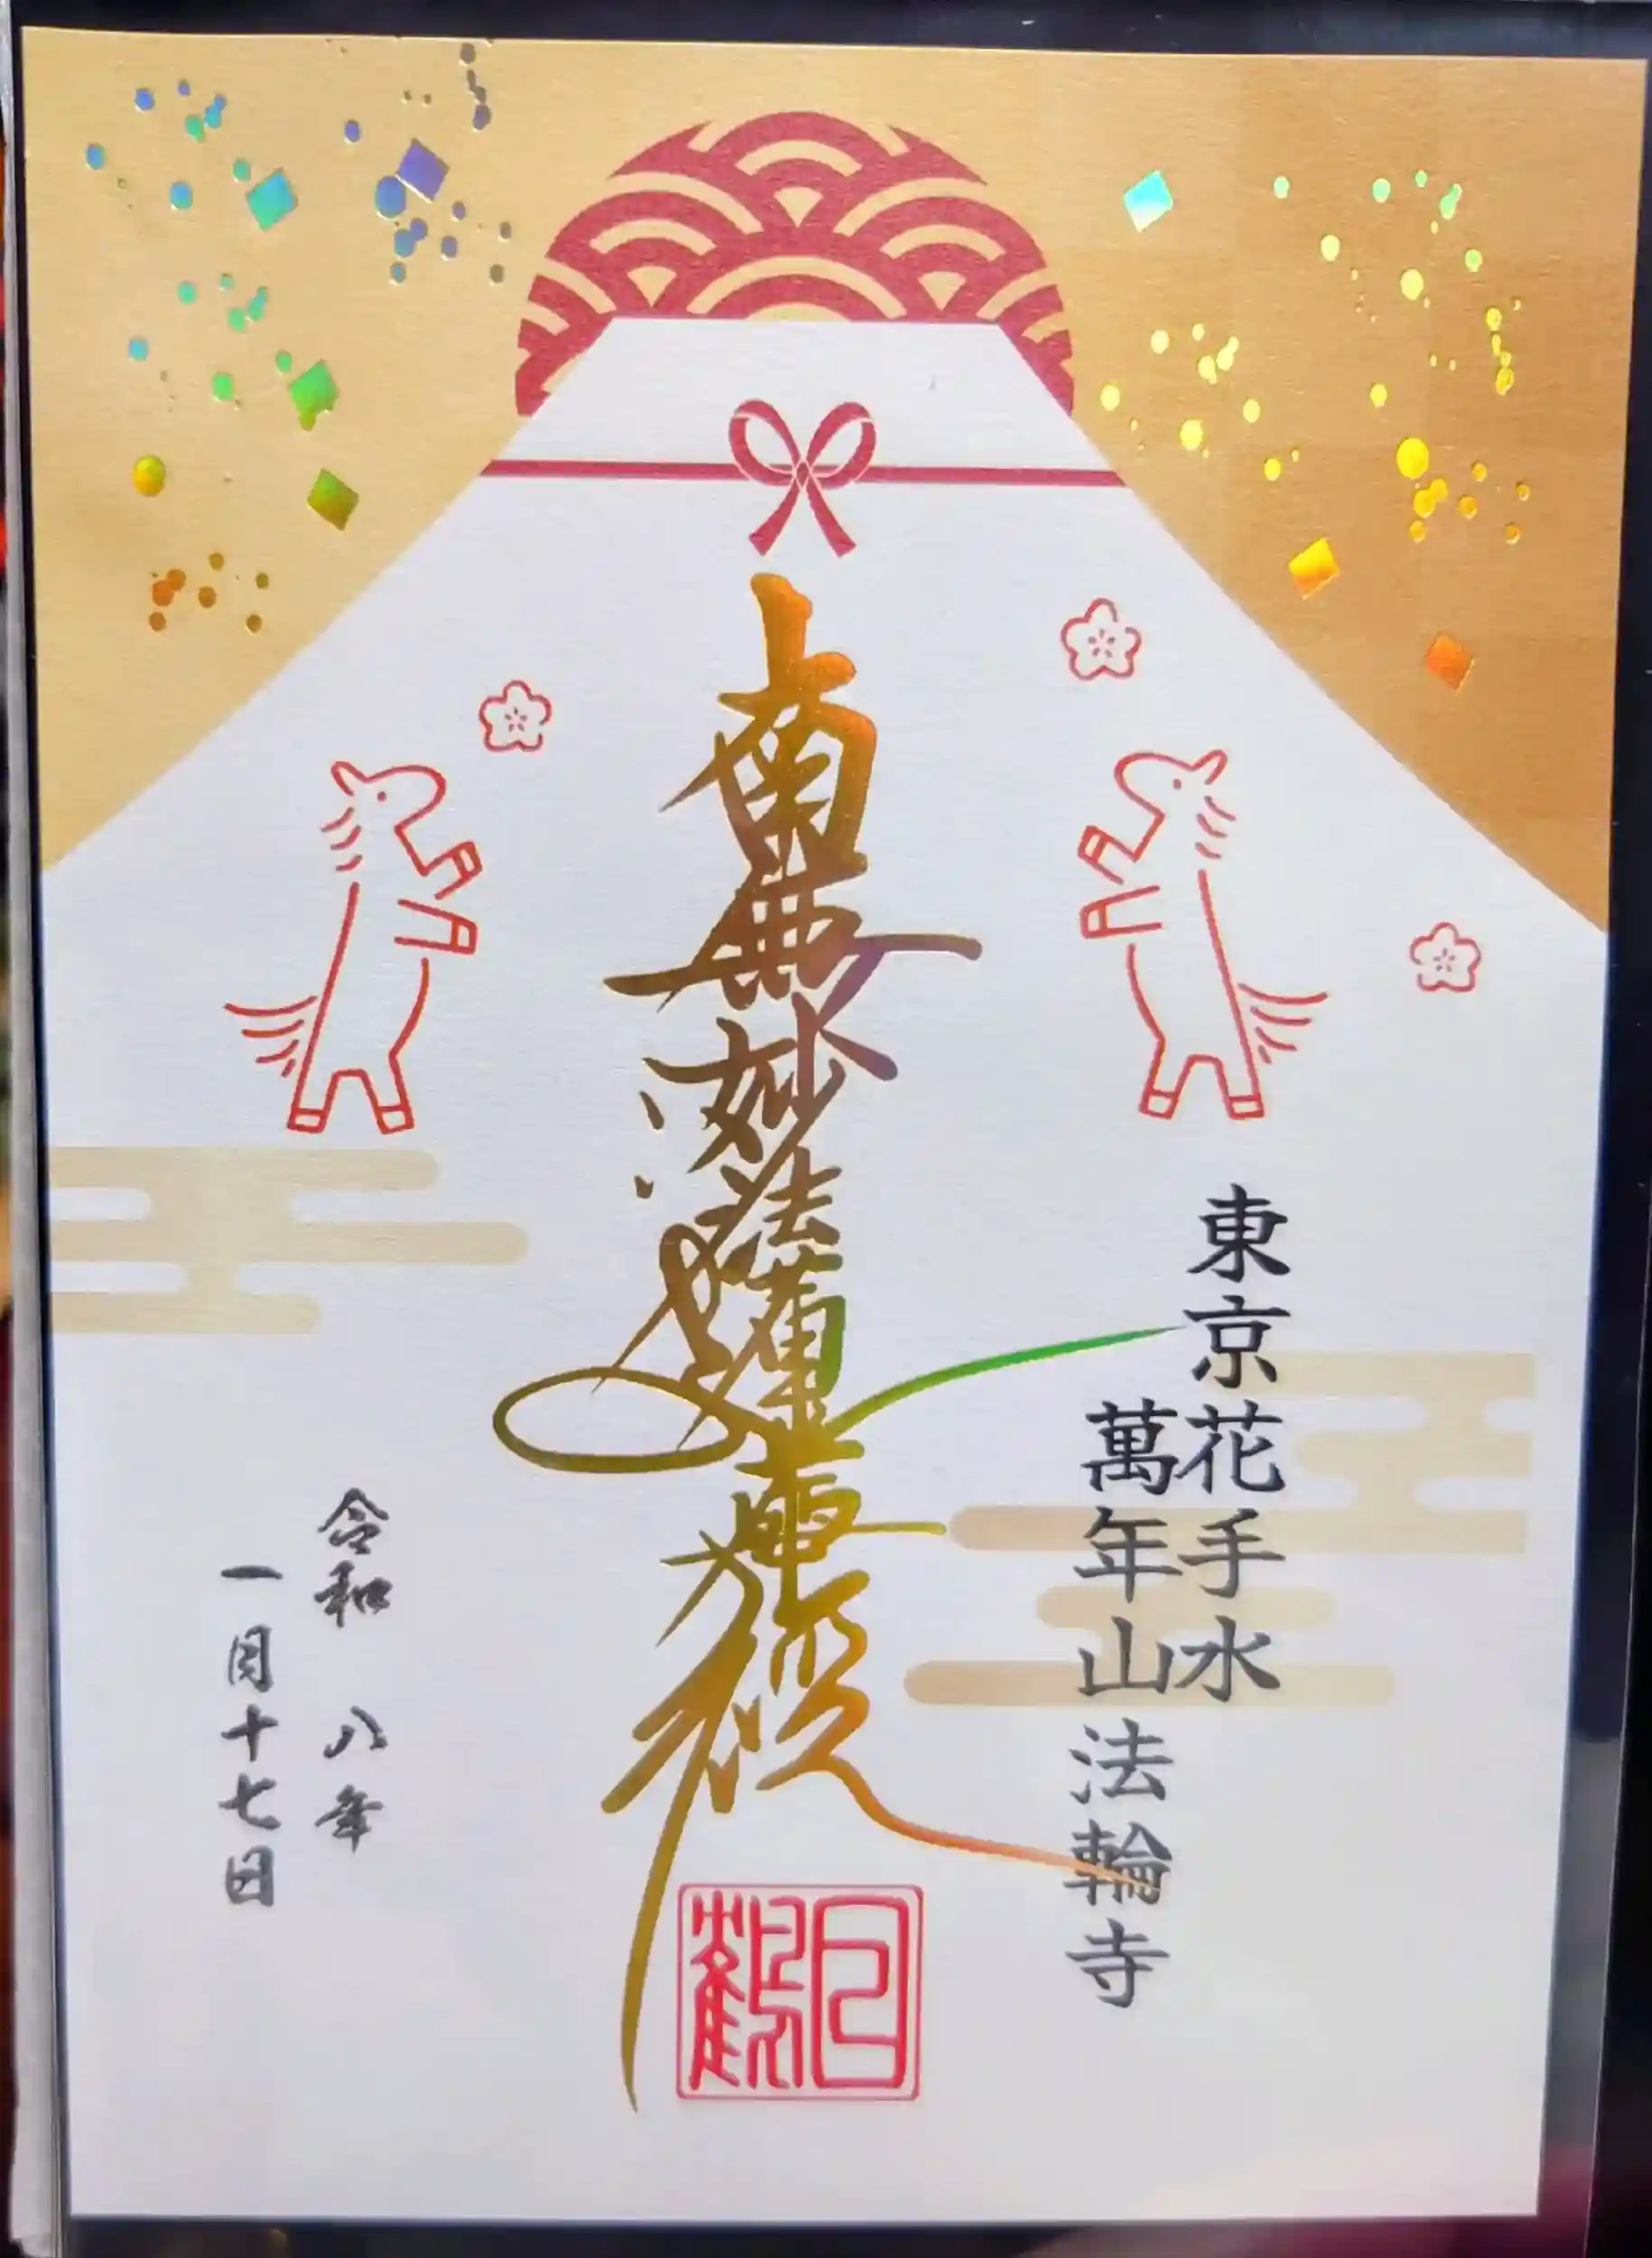 東京花手水
萬年山法輪寺
南無妙法蓮華経
令和八年
一月十七日